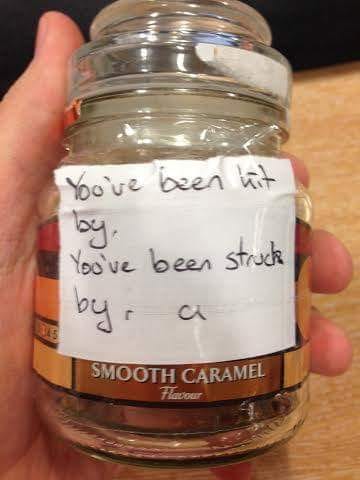 You've been hit
by,
You've been struck
by, a
SMOOTH CARAMEL
Flavour